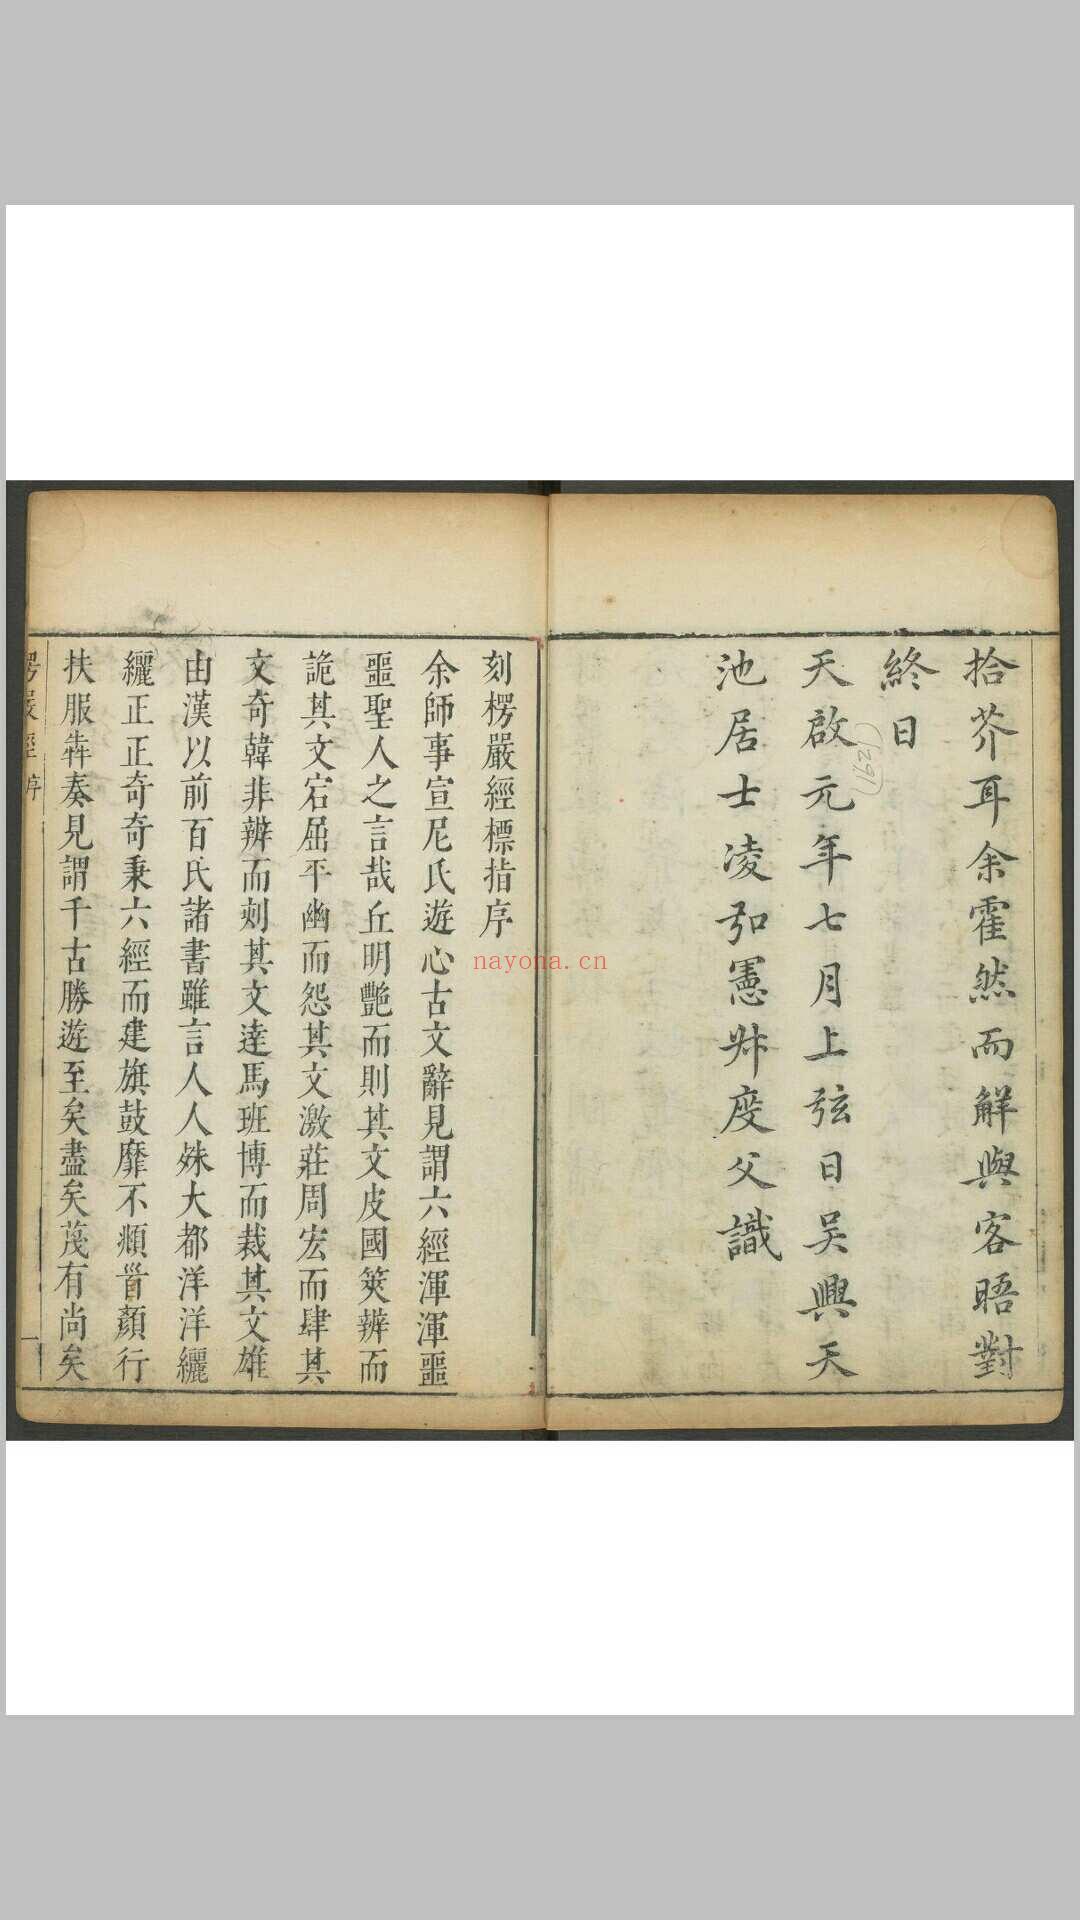 拾芥耳余霍然而解與客晤對
終日
天啟元年七月上弦日吴興天
池居士凌弘憲叔度父識
(1291)
刻楞嚴經標指序
余師事宣尼氏遊心古文辭見謂六經渾渾噩
噩聖人之言哉丘明艷而則其文皮國筴辨而
詭其文宕屈平幽而怨其文激莊周宏而肆其
文奇韓非辨而刻其文達馬班博而裁其文雄
由漢以前百氏諸書雖言人人殊大都洋洋纚
纚正正奇奇秉六經而建旗鼓靡不頫首顏行
扶服犇奏見謂千古勝遊至矣盡矣蔑有尚矣
楞嚴經 序 一
nayona.cn